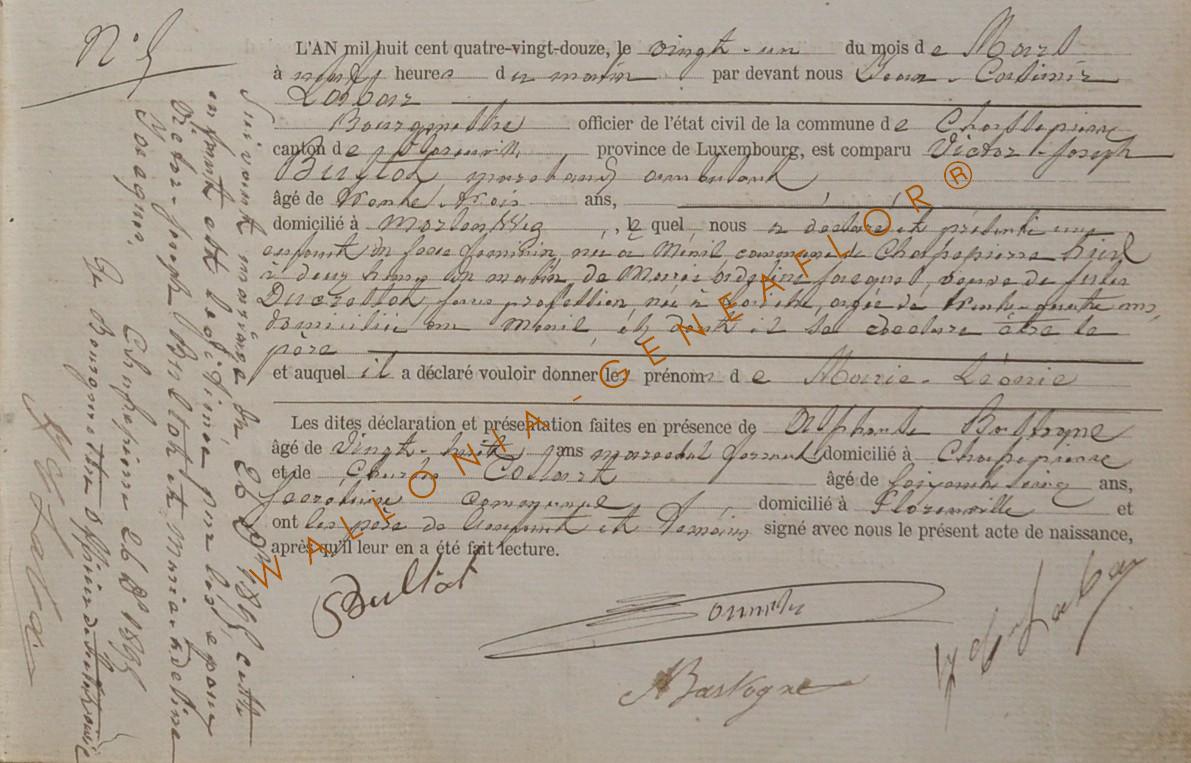 N° 5
L'AN mil huit cent quatre-vingt-douze, le vingt-un du mois de Mars
à neuf heures du matin par devant nous Jean-Casimir
Labar
Bourgmestre officier de l'état civil de la commune de Chassepierre
canton de Florenville, province de Luxembourg, est comparu Victor-Joseph
Bultot marchand ambulant
âgé de trente trois ans,
domicilié à , le quel nous a déclaré et présenté un
enfant du sexe féminin, née à Ménil commune de Chassepierre hier
à deux heures du matin de Marie Adeline Jacques, veuve de Jules
sans profession, née à agée de trente-quatre ans,
domiciliée au Menil, et dont il se declare être le
père
et auquel il a déclaré vouloir donner les prénoms de Marie-Léonie
Les dites déclaration et présentation faites en présence de Alphonse Bastogne
âgé de vingt-huit ans marechal ferrant domicilié à Chassepierre
et de Collart âgé de cinquante cinq ans,
secrétaire communal domicilié à Florenville et
ont les père de l'enfant et témoins signé avec nous le présent acte de naissance,
après qu'il leur en a été fait lecture.
Bultot
ABastogne
Labar
Suivant mariage du 26 1895, cette
enfant est legitimée par les époux
Victor-Joseph Bultot et Maria Adeline
Jacques.
Chassepierre 26 1895
Le Bourgmestre Officier de l'état civil
Labar
WALLONIA-GENEAFLOR®